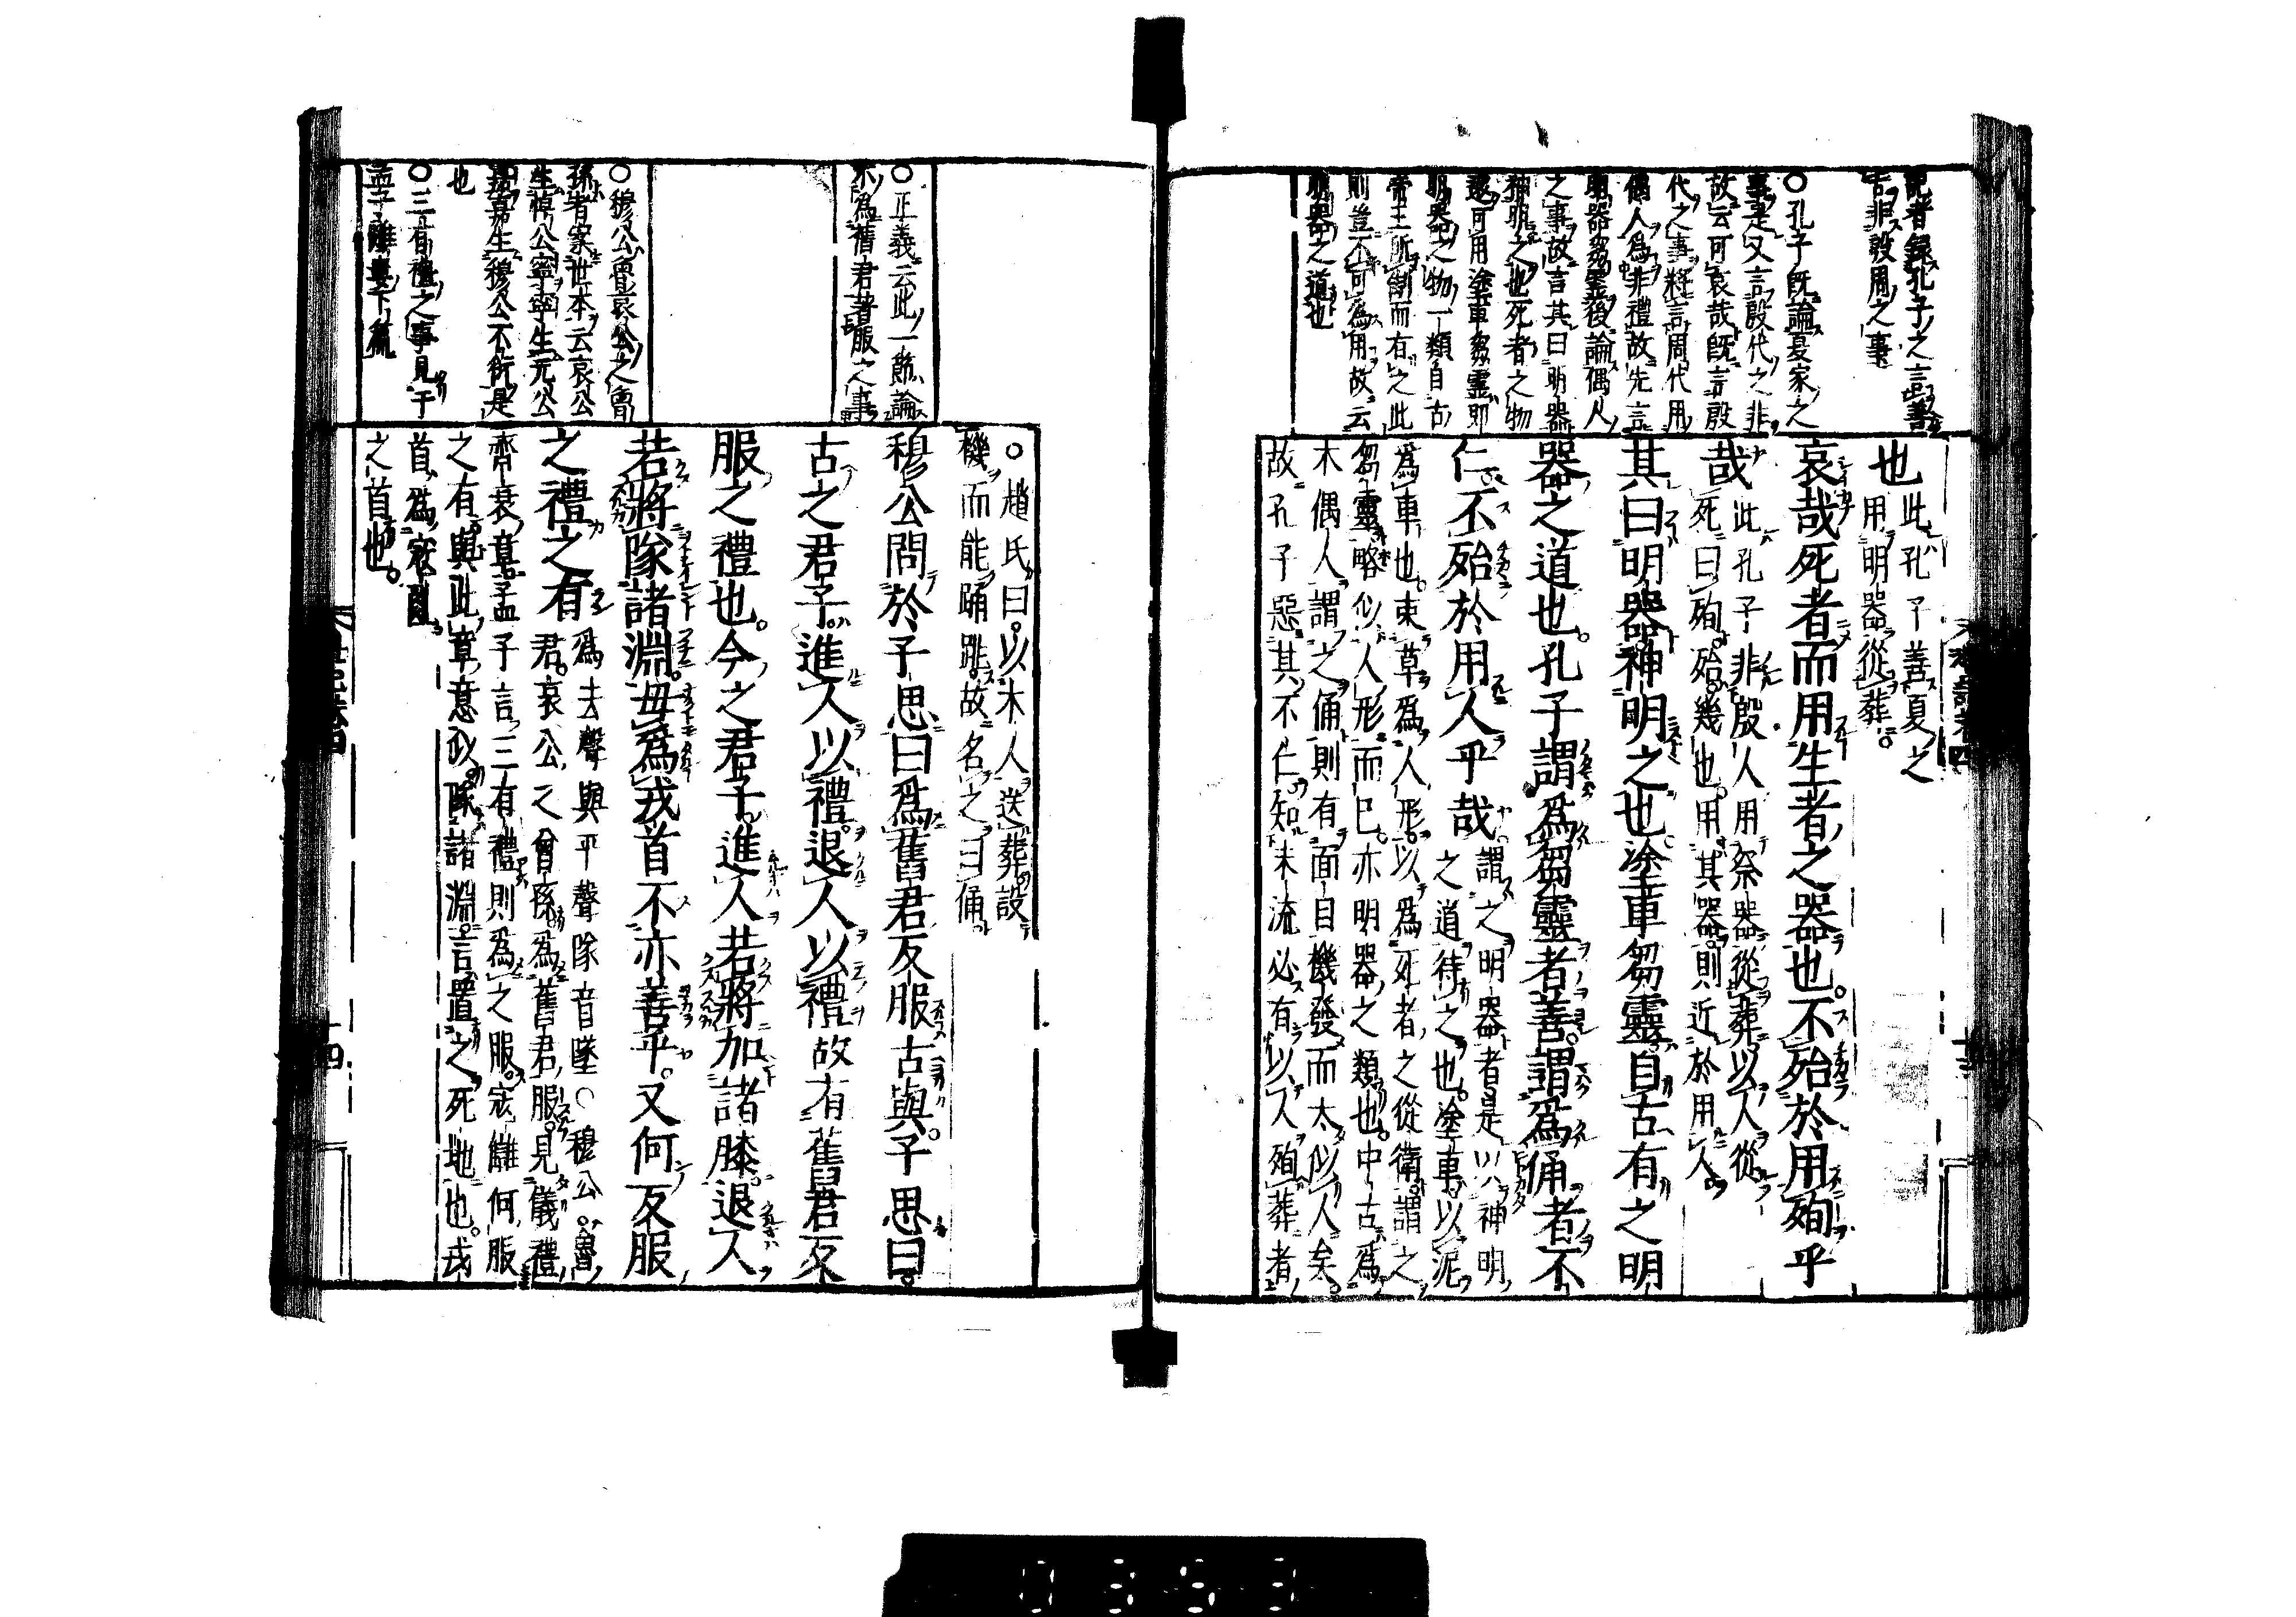 記者録孔子之言善
古非殷周之事
○孔子既論夏家之
事是又言殷代之非
故云可哀哉既言殷
代之事將言周代用
偶人為非禮故先言
明器芻靈後論偶人
之事故言其曰明器
神明之也死者之物
還可用塗車芻靈即
明器之物一類自古
帝王所制而有之此
則豈不可為用故云
明器之道也
也此孔子善夏之
用明器從葬。
哀哉死者而用生者之器也。不殆於用殉乎
哉此孔子非殷人用祭器從葬以人從
死曰殉殆幾也用其器則近於用人
其曰明器神明之也塗車芻靈自古有之明
器之道也。孔子謂為芻靈者善。謂為俑者不
仁。不殆於用人乎哉謂之明器者是以神明
之道待之也。塗車以泥
為車也。束草為人形。以為死者之從衛謂之
芻靈略似人形而已。亦明器之類也。中古為
木偶人謂之俑則有面目機發而太似人矣。
故孔子惡其不仁。知末流必有以人殉葬者
○正義云此一節論
不為舊君著服之事
○穆公魯哀公之曾
孫者案世本云哀公
生悼公寧寧生元公
嘉嘉生穆公不衍是
也
○三有禮之事見于
孟子離婁下篇
○趙氏曰。以木人送葬設
機而能踊跳。故名之曰俑。
穆公問於子思曰為舊君反服古與。子思曰。
古之君子。進人以禮。退人以禮故有舊君反
服之禮也。今之君子。進人若將加諸膝。退人
若將隊諸淵。毋為戎首不亦善乎。又何反服
之禮之有為去聲與平聲隊音墜○穆公魯
君。哀公之曾孫為舊君服。見儀禮
齊衰章。孟子言三有禮則為之服。寇讎何服
之有與此章意似。隊諸淵。言置之死地也。戎
首為寇亂
之首也。